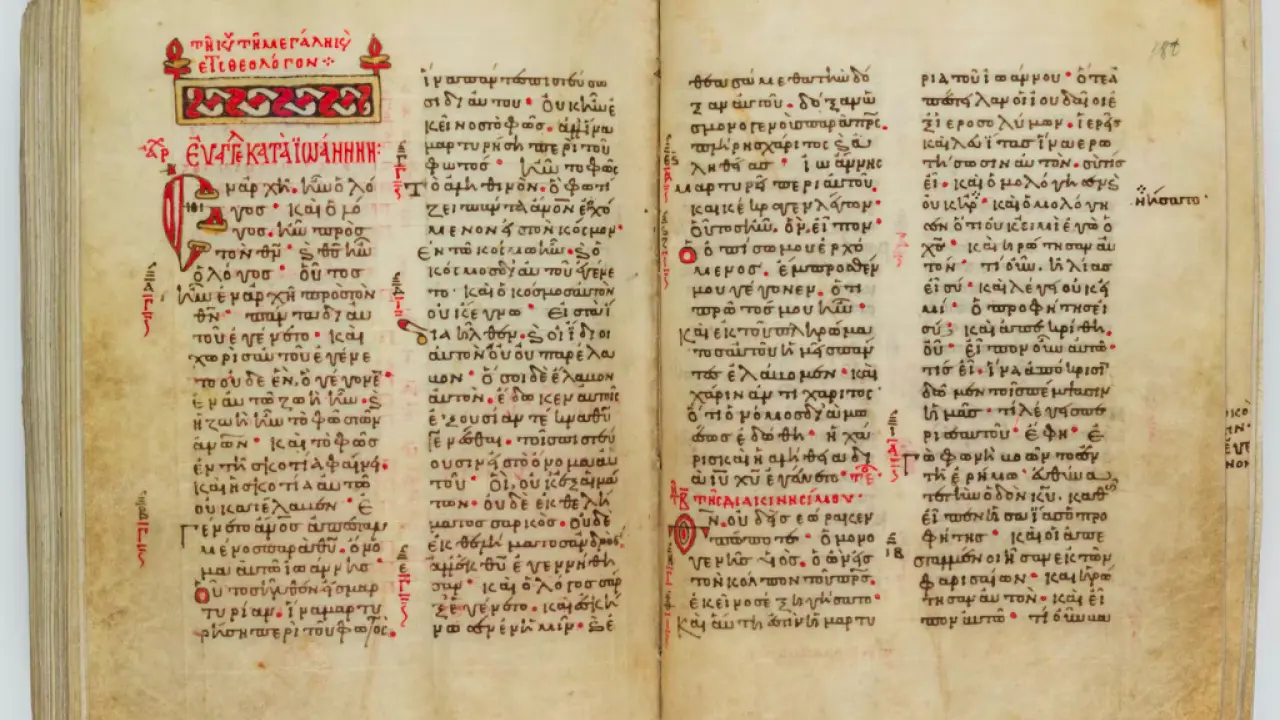 τῇ κυ τῇ μεγάλη κυ
θεολόγον
ἐυαγγε κατὰ ϊωάννην:
Ἐν ἀρχῆ ἦν ὁ λό
γος · καὶ ὁ λό
γος ἦν πρὸς
τὸν θν · ϗ θς ἦν
ὁ λόγος · οὗτος
ἦν ἐν ἀρχῆ πρὸς τὸν
θν · πάντα δι αυ
τοῦ ἐγένετο · καὶ
χωρὶς αυτοῦ ἐγένε
το οὐδὲ ἕν. ὃ γέγονεν
ἐν αυτῶ ζωὴ ἦν. ϗ
ἡ ζωὴ ἦν τὸ φῶς τῶν
ἀνων · καὶ τὸ φῶς
ἐν τῆ σκοτία φαίνει.
καὶ ἡ σκοτία αυτὸ
οὐ κατέλαβεν · ἐ
γένετο ἄνος ἀπεσταλ
μένος παρὰ θυ. ὄνο
μα αυτῶ ἰωάννης
οὗτος ἦλθεν εἰς μαρ
τυρίαν. ἵνα μαρτυ
ρήση περὶ τοῦ φωτός.
ἵνα πάντες πιστεύσω
σι δι αυτοῦ · οὐκ ἦν ἐ
κεῖνος τὸ φῶς. ἀλλ ἵνα
μαρτυρήση περὶ τοῦ
φωτός · ἦν τὸ φῶς
τὸ ἀληθινὸν. ὃ φωτί
ζει πάντα ἄνον ἐρχό
μενον εἰς τὸν κόσμον·
ἐν τῶ κόσμω ἦν. ϗ ὁ
κόσμος δι αυτοῦ ἐγένε
το · καὶ ὁ κόσμος αυτὸν
οὐκ ἔγνω · εἰς τὰ ἴ
δια ἦλθεν. ϗ οἱ ἴδιοι
αυτὸν οὐ παρέλα
βον · ὅσοι δὲ ἔλαβον
αυτὸν. ἔδωκεν αυτοῖς
ἐξουσίαν τέκνα θυ
γενέσθαι. τοῖς πιστεύ
ουσιν εἰς τὸ ὄνομα αυ
τοῦ · οἳ οὐκ ἐξ αἱμά
των. οὐδὲ ἐκ θελή
ματος σαρκός. οὐδὲ
ἐκ θελήματος ἀνδρός.
ἀλλ ἐκ θυ ἐγεννήθη
σαν · καὶ ὁ λόγος σὰρ
ξ ἐγένετο. καὶ ἐσκή
νωσεν ἐν ἡμῖν. ϗ ἐ
θεασάμεθα τὴν δό
ξαν αυτοῦ. δόξαν ὡς
μονογενοῦς παρὰ πρς.
πλήρης χάριτος ϗ ἀ
ληθείας · ἰωάννης
μαρτυρεῖ περὶ αυτοῦ.
καὶ κέκραγεν λέγων·
οὗτος ἦν. ὃν εἶπον·
ὁ ὀπίσω μου ἐρχό
μενος. ἔμπροσθέν
μου γέγονεν. ὅτι
πρῶτός μου ἦν ·
καὶ ἐκ τοῦ πληρώμα
τος αυτοῦ ἡμεῖς πάν
τες ἐλάβομεν · καὶ
χάριν ἀντὶ χάριτος·
ὅτι ὁ νόμος διὰ μω
σέως ἐδόθη · ἡ χά
ρις καὶ ἡ ἀλήθεια δι
α ιυ χυ ἐγένετο · τε
τῇ δι ακινησίμου·
Θν. οὐδεὶς ἑώρακεν
πώποτε · ὁ μονο
γενὴς υἱός. ὁ ὢν εἰς
τὸν κόλπον τοῦ πρς.
ἐκεῖνος ἐξηγήσατο·
καὶ αυτη ἐστὶν ἡ μαρτυ
ρία τοῦ ἰωάννου · ὅτε ἀ
πέστειλαν οἱ ἰουδαῖοι ἐ
ξ ἱεροσολύμων. ἱερεῖς
καὶ λευΐτας ἵνα ἐρω
τήσωσιν αυτόν. σὺ τίς
εἶ. καὶ ὡμολόγησεν ϗ
οὐκ ἠρ · καὶ ὡμολόγη
σεν ὅτι οὐκ εἰμὶ ἐγὼ ὁ
χς · καὶ ἠρώτησαν αυ
τόν · τί οὖν. ἠλίας
εἶ σύ · καὶ λέγει οὐκ εἰ
μί · ὁ προφήτης εἶ
σύ · καὶ ἀπεκρίθη.
οὔ · εἶπον οὖν αυτῶ·
τίς εἶ. ἵνα ἀπόκρισιν
δῶμεν τοῖς πέμψασιν
ἡμᾶς · τί λέγεις πε
ρὶ σεαυτοῦ · ἔφη · ἐ
γὼ φωνὴ βοῶντος ἐν
τῆ ἐρήμω. εὐθύνα
τε τὴν ὁδὸν κυ. καθὼς
εἶπεν ἡσαΐας ὁ προ
φήτης · καὶ οἱ ἀπε
σταλμένοι ἦσαν ἐκ τῶν
φαρισαίων · καὶ ἠρώ
τησαν αυτὸν · καὶ εἶ
πον αυτῶ · τί οὖν βα
ἠρνήσατο·